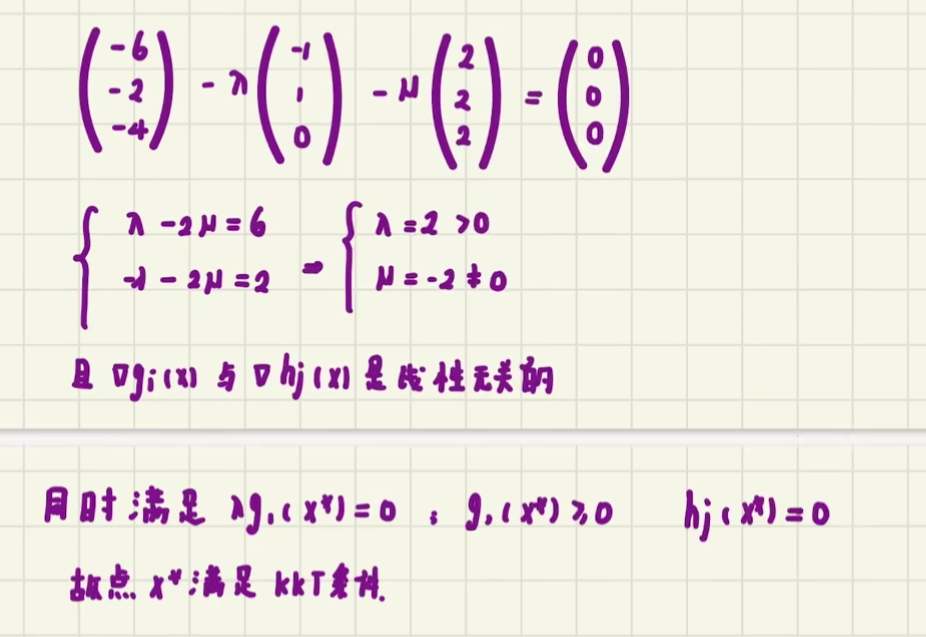 (-6 -2 -4) - λ (-1 1 0) - μ (2 2 2) = (0 0 0)
{ λ - 2μ = 6 { λ = 2 > 0
-λ - 2μ = 2 ⇒ μ = -2 ≠ 0
且 ∇gᵢ(x) 与 ∇hⱼ(x) 是线性无关的
同时满足 λg₁(x*) = 0 ; g₁(x*) ≥ 0 hⱼ(x*) = 0
故点 x* 满足 kkT条件.